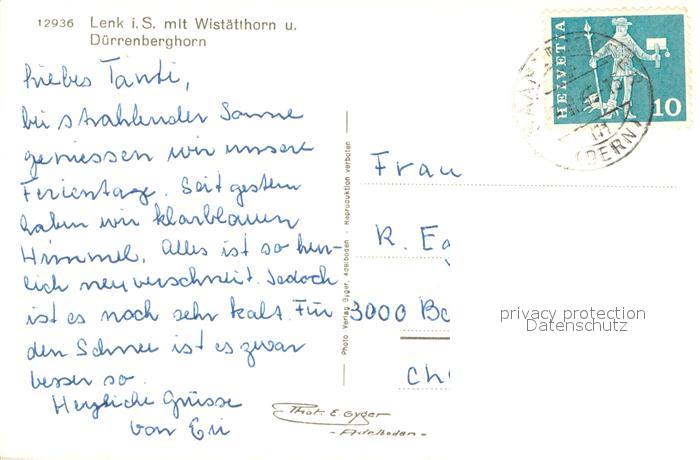 12936 Lenk i. S. mit Wistätthorn u.
Dürrenberghorn
HELVETIA
10
(BERN)
Liebes Tanti,
bei strahlender Sonne
geniessen wir unsere
Ferientage. Seit gestern
haben wir klarblauen
Himmel. Alles ist so herr-
lich neu verschneit. Jedoch
ist es noch sehr kalt. Für
den Schnee ist es zwar
besser so.
Herzliche Grüsse
von
Photo Verlag Gyger, Adelboden - Reproduktion verboten
Frau
R. Eg
3000 Be
CH
privacy protection
Datenschutz
Phot. E. Gyger
- Adelboden -